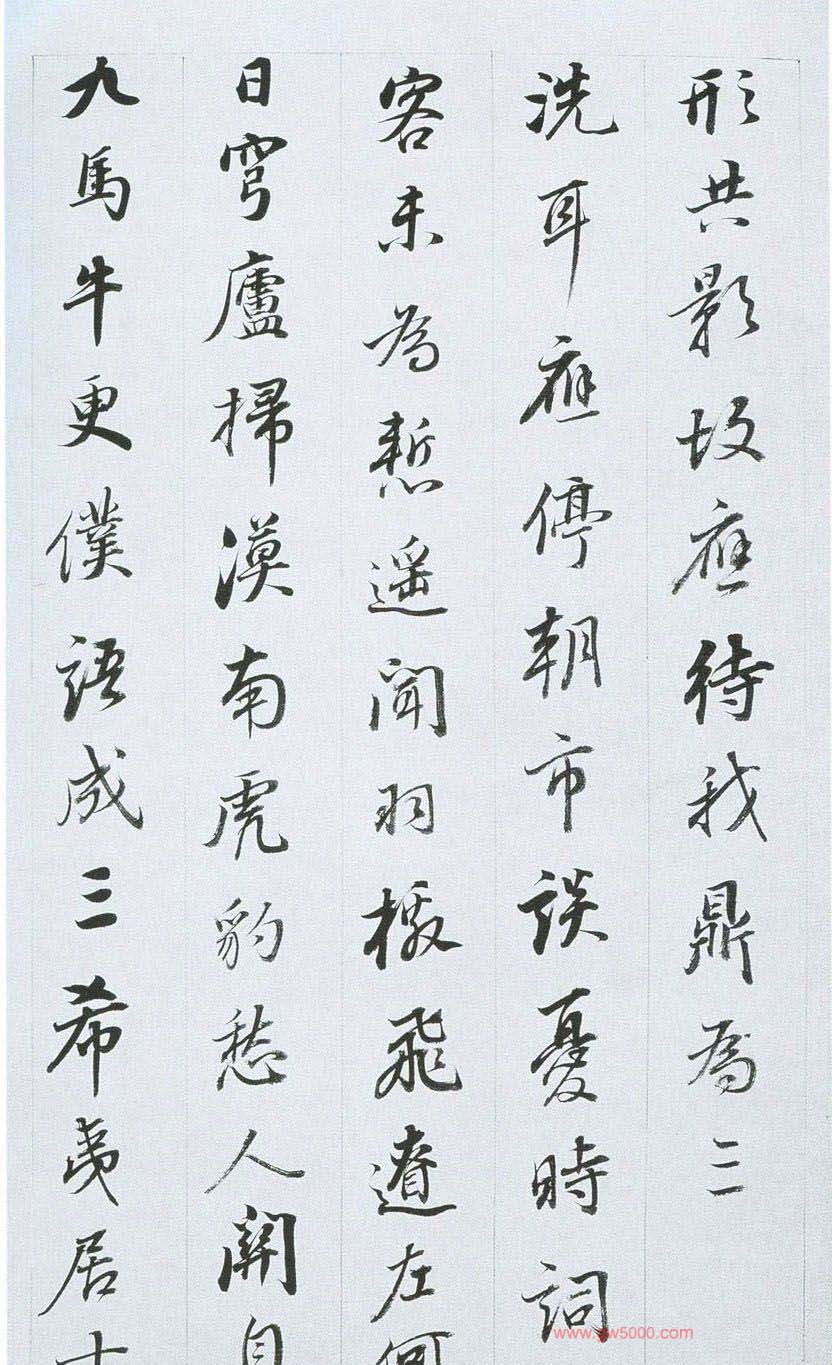 形共影故應待我鼎為三
洗耳應停朝市談憂時詞
客未為慙遥聞羽檄飛遼左
日穹廬掃漠南虎豹愁人關
九馬牛更僕語成三希夷居
www.yw5000.com